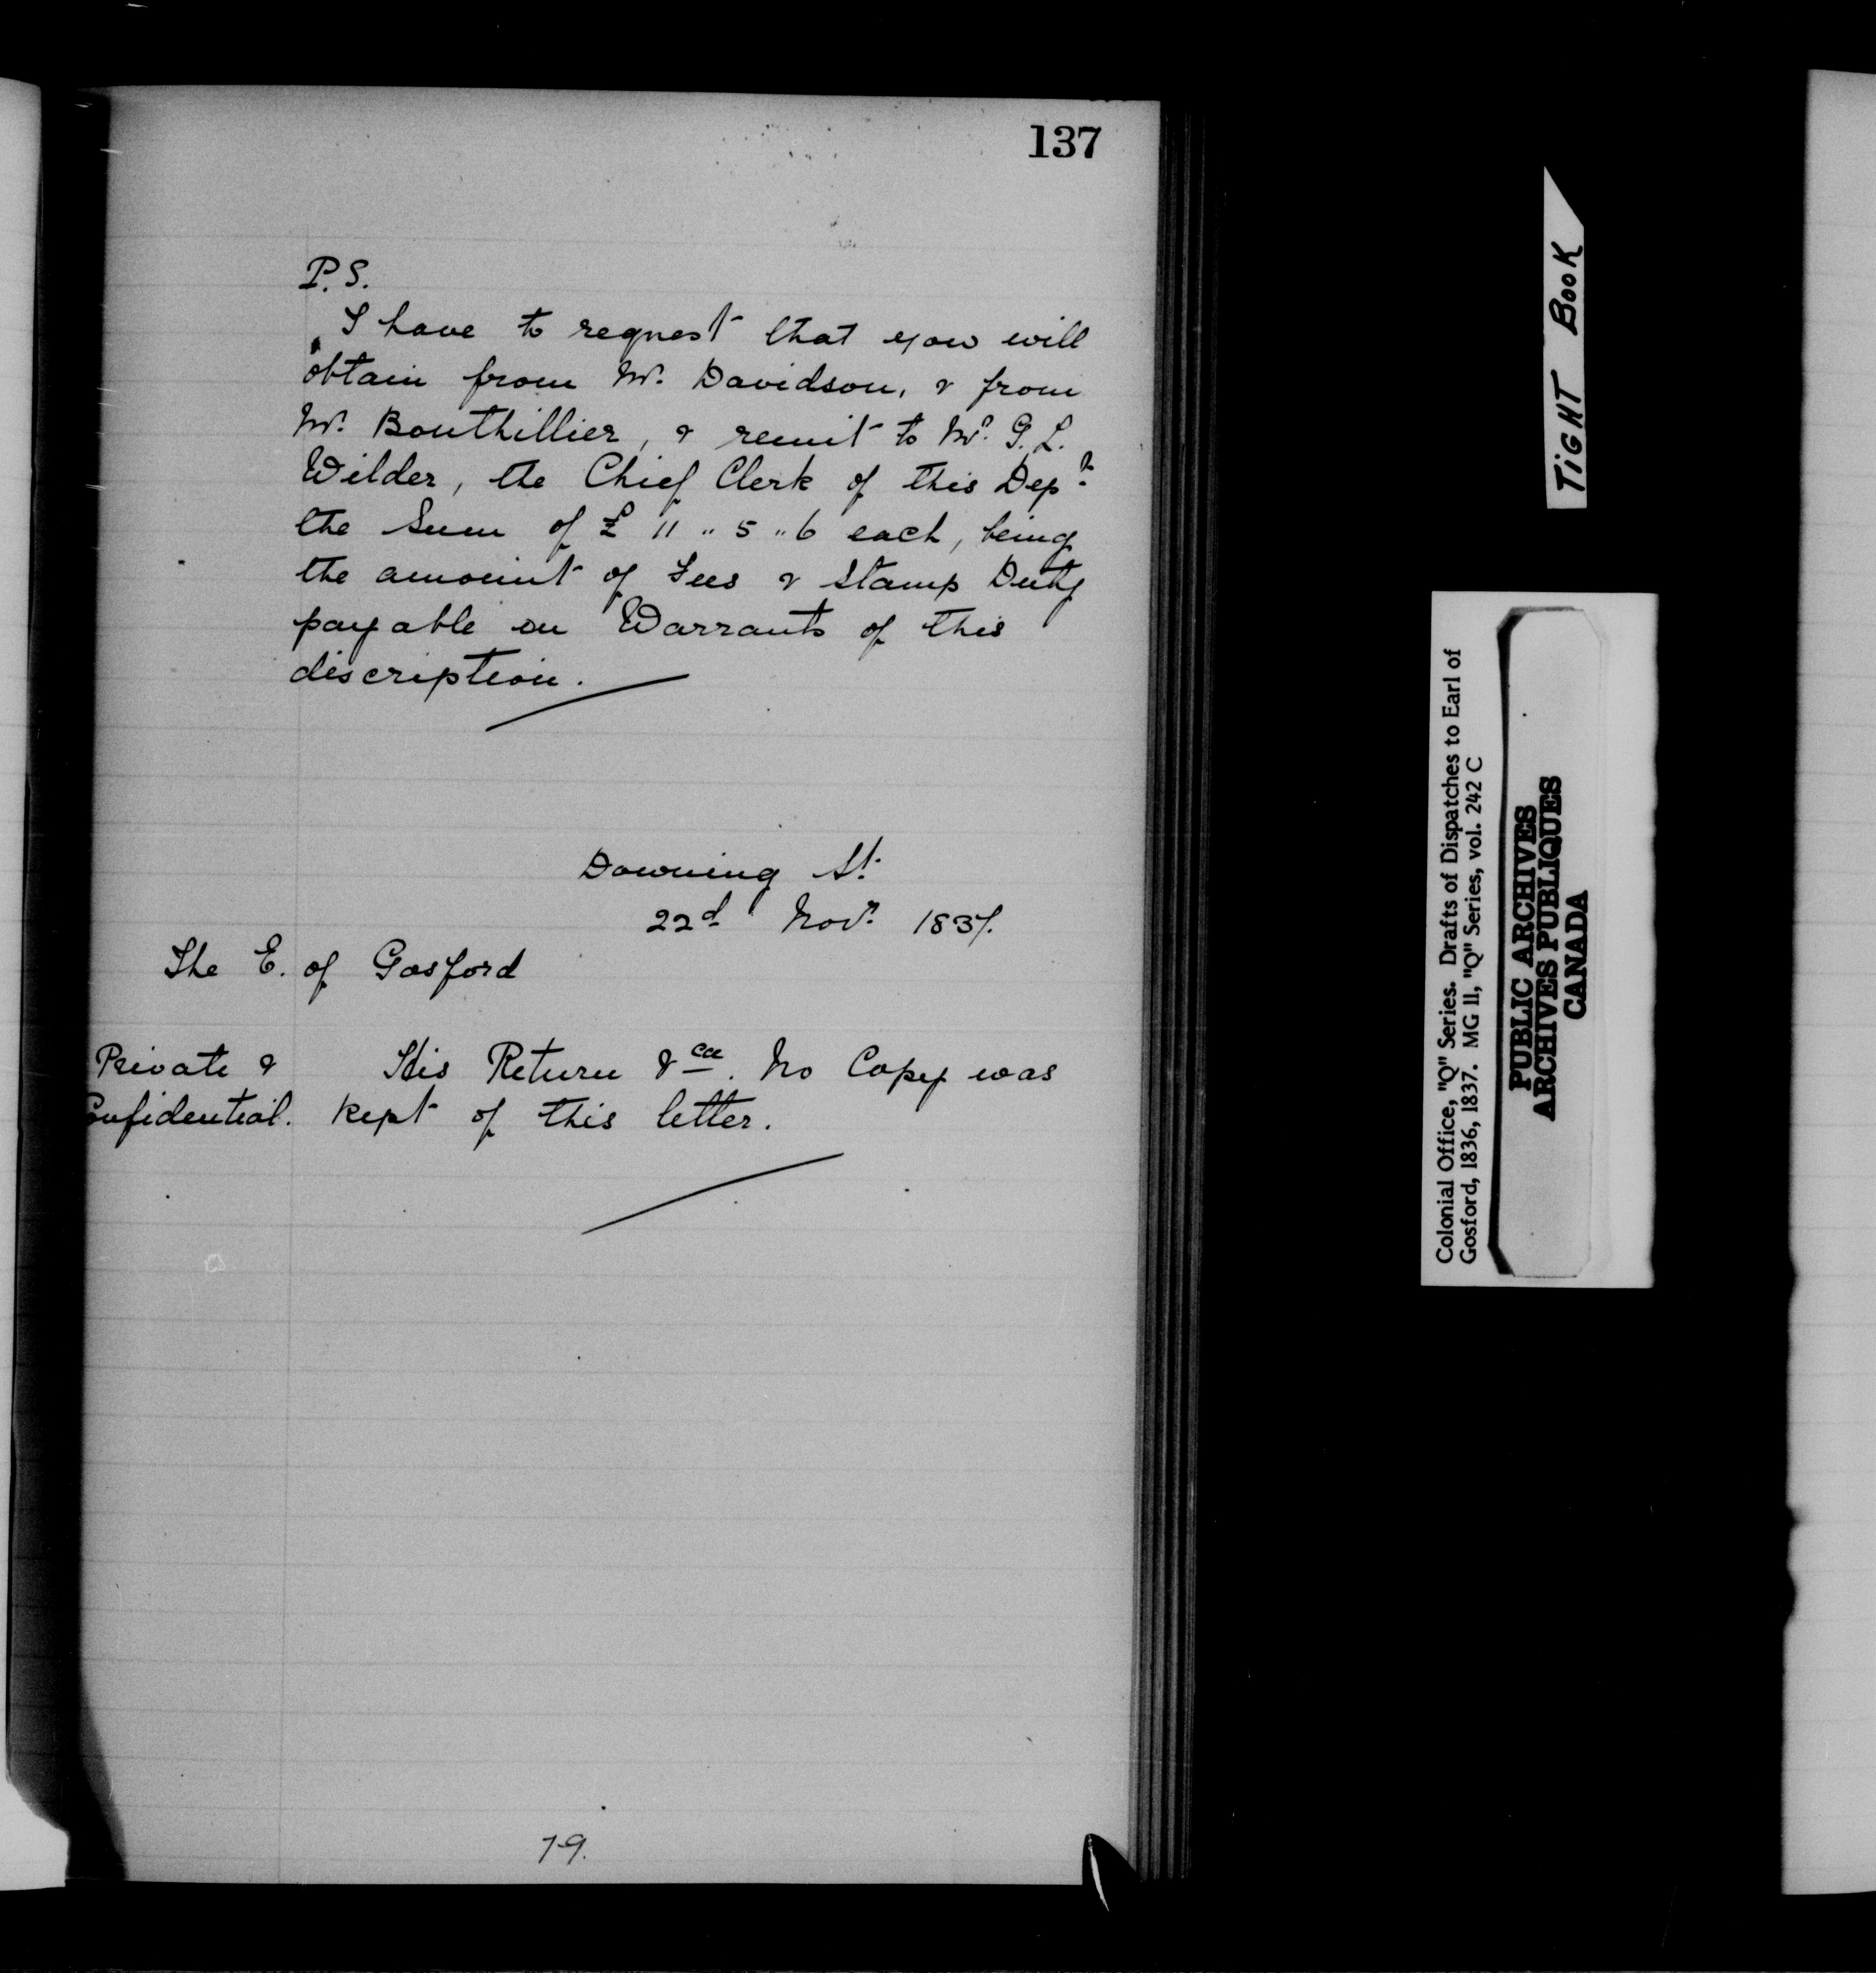 137
P.S.
I have to request that you will
obtain from Mr. Davidson, & from
Mr. Bouthillier, & remit to Mr. G. L.
Wilder, the Chief Clerk of this Dept.
the Sum of £ 11 " 5 " 6 each, being
the amount of Fees & Stamp Duty
payable on Warrants of this
discription.
Downing St.
22d. Novr. 1837.
The E. of Gosford
Private &
Confidential.
His Return &ca. No Copy was
kept of this letter.
79.
TIGHT BOOK
Colonial Office, "Q" Series. Drafts of Dispatches to Earl of
Gosford, 1836, 1837. MG 11, "Q" Series, vol. 242 C
PUBLIC ARCHIVES
ARCHIVES PUBLIQUES
CANADA